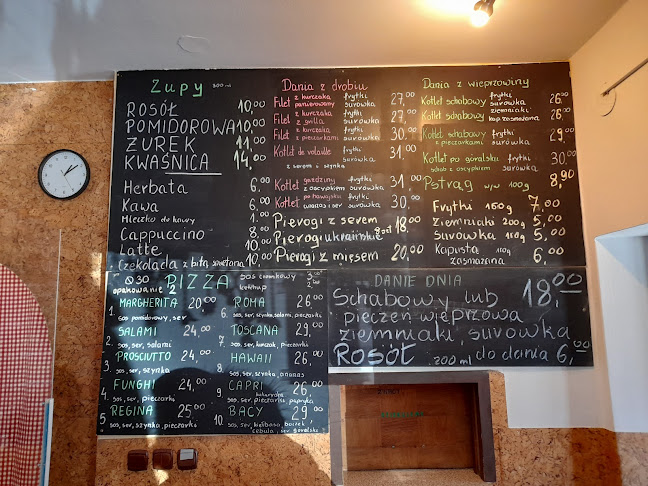 Zupy 300 ml
ROSÓŁ 10,00
POMIDOROWA 10,00
ŻUREK 11,00
KWAŚNICA 14,00
Herbata 6,00
Kawa 6,00
Mleczko do kawy 1,00
Cappuccino 8,00
Latte 10,00
Czekolada z bitą śmietaną 10,00
Dania z drobiu
Filet z kurczaka panierowany frytki surówka 27,00
Filet z kurczaka z grilla frytki surówka 27,00
Filet z kurczaka z pieczarkami frytki surówka 30,00
Kotlet de volaille frytki surówka 31,00
z serem i szynką
Kotlet gaździny z oscypkiem frytki surówka 31,00
Kotlet po hawajsku frytki surówka 30,00
Pierogi z serem 18,00
Pierogi ukraińskie
Pierogi z mięsem 20,00
Dania z wieprzowiny
Kotlet schabowy frytki surówka 26,00
Kotlet schabowy ziemniaki kap. zasmażana 26,00
Kotlet schabowy z pieczarkami frytki surówka 29,00
Kotlet po góralsku frytki surówka 30,00
schab z oscypkiem
Pstrąg 100g 8,90
Frytki 150g 7,00
Ziemniaki 200g 5,00
Surówka 150g 5,00
Kapusta zasmażana 6,00
Ø30 PIZZA
opakowanie 2
sos czosnkowy
ketchup
1. MARGHERITA 20,00
sos pomidorowy, ser
2. SALAMI 24,00
sos, ser, salami
3. PROSCIUTTO 24,00
sos, ser, szynka
4. FUNGHI 24,00
sos, ser, pieczarki
5. REGINA 25,00
sos, ser, szynka, pieczarki
ROMA 26,00
sos, ser, szynka, salami, pieczarki
7. TOSCANA 29,00
sos, ser, kurczak, pieczarki
8. HAWAII 26,00
sos, ser, szynka, ananas
9. CAPRI 26,00
kukurydza
sos, ser, pieczarki, papryka
10. BACY 29,00
sos, ser, kiełbasa, boczek,
cebula, ser góralski
DANIE DNIA
Schabowy lub 18,00
pieczeń wieprzowa,
ziemniaki, surówka
Rosół 200 ml do dania 6,00